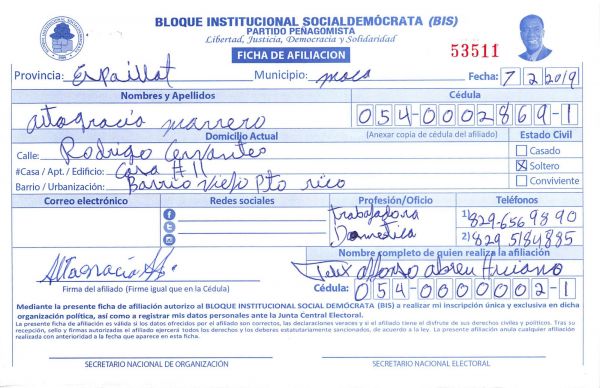 BLOQUE INSTITUCIONAL SOCIALDEMÓCRATA (BIS)
PARTIDO PEÑAGOMISTA
Libertad, Justicia, Democracia y Solidaridad
FICHA DE AFILIACION
53511
Provincia: Espaillat Municipio: moca Fecha: 7/2/2019
Nombres y Apellidos Cédula
altagracia marrero 054-0002869-1
Domicilio Actual (Anexar copia de cédula del afiliado) Estado Civil
Calle: Rodrigo Cervantes Casado
#Casa / Apt. / Edificio: Casa #11 X Soltero
Barrio / Urbanización: Barrio Viejo Pto rico Conviviente
Correo electrónico Redes sociales Profesión/Oficio Teléfonos
trabajadora 1) 829-656 9890
Domestica 2) 829 5184885
Nombre completo de quien realiza la afiliación
Altagracia Felix alfonso abreu
Firma del afiliado (Firme igual que en la Cédula) Cédula: 054-0000002-1
Mediante la presente ficha de afiliación autorizo al BLOQUE INSTITUCIONAL SOCIAL DEMÓCRATA (BIS) a realizar mi inscripción única y exclusiva en dicha
organización política, así como a registrar mis datos personales ante la Junta Central Electoral.
La presente ficha de afiliación es válida si los datos ofrecidos por el afiliado son correctos, las declaraciones veraces y si el titular tiene el disfrute de sus derechos civiles y políticos. Tras su
recepción, sello y firmas autorizadas el afiliado ejercerá todos los derechos y los deberes estatutariamente sancionados, de acuerdo a la ley. La presente afiliación anula cualquier afiliación
realizada con anterioridad a la fecha que aparece en esta ficha.
SECRETARIO NACIONAL DE ORGANIZACIÓN SECRETARIO NACIONAL ELECTORAL